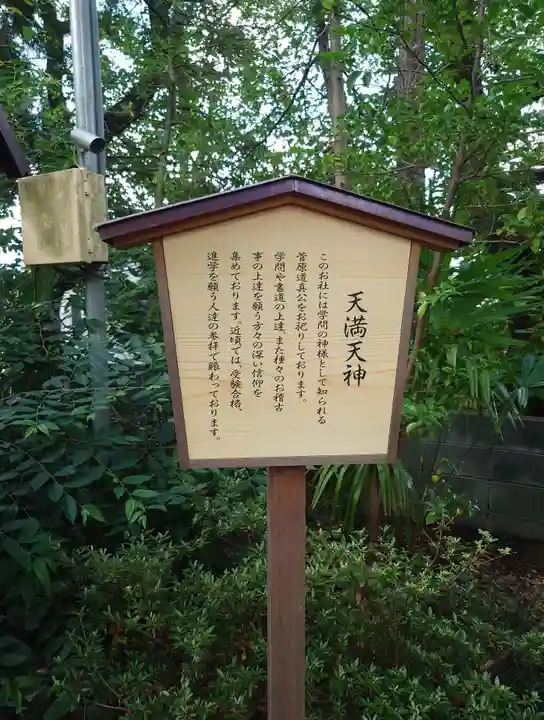 天満天神
このお社には学問の神様として知られる
菅原道真公をお祀りしております。
学問や書道の上達、また種々のお稽古
事の上達を願う方々の深い信仰を
集めております。近頃では、受験合格、
進学を願う人達の参拝で賑わっております。